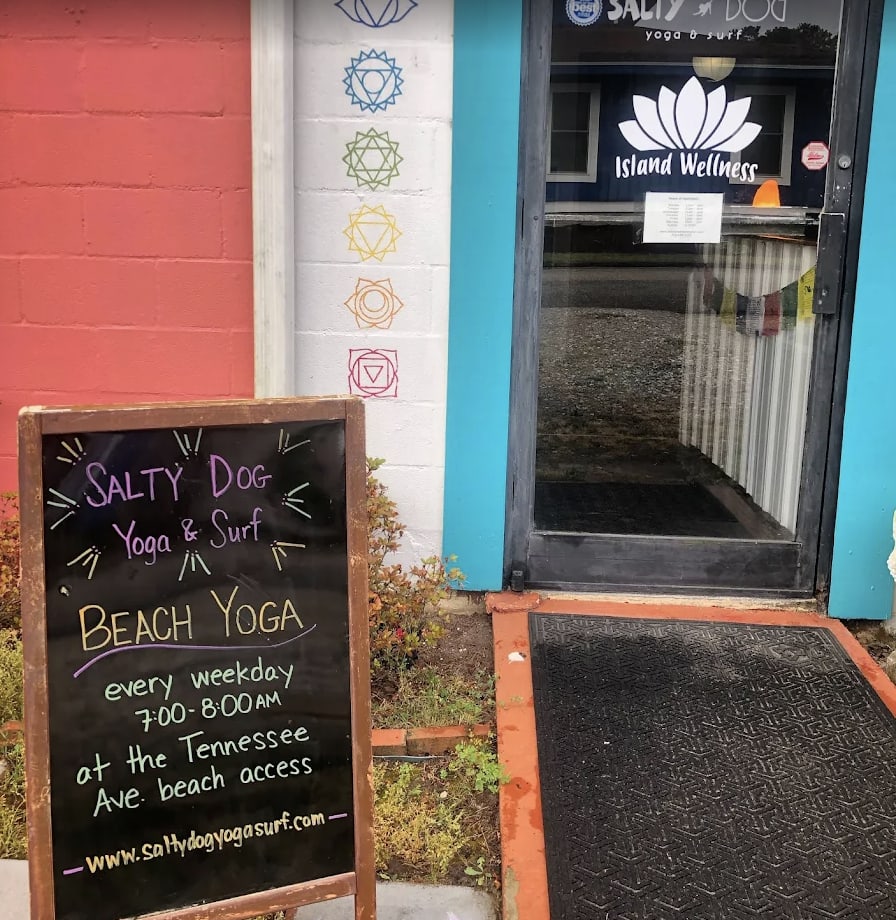 SALTY DOG
yoga & surf
Island Wellness
SALTY DOG
Yoga & Surf
BEACH YOGA
every weekday
7:00-8:00AM
at the Tennessee
Ave. beach access
www.saltydogyogasurf.com